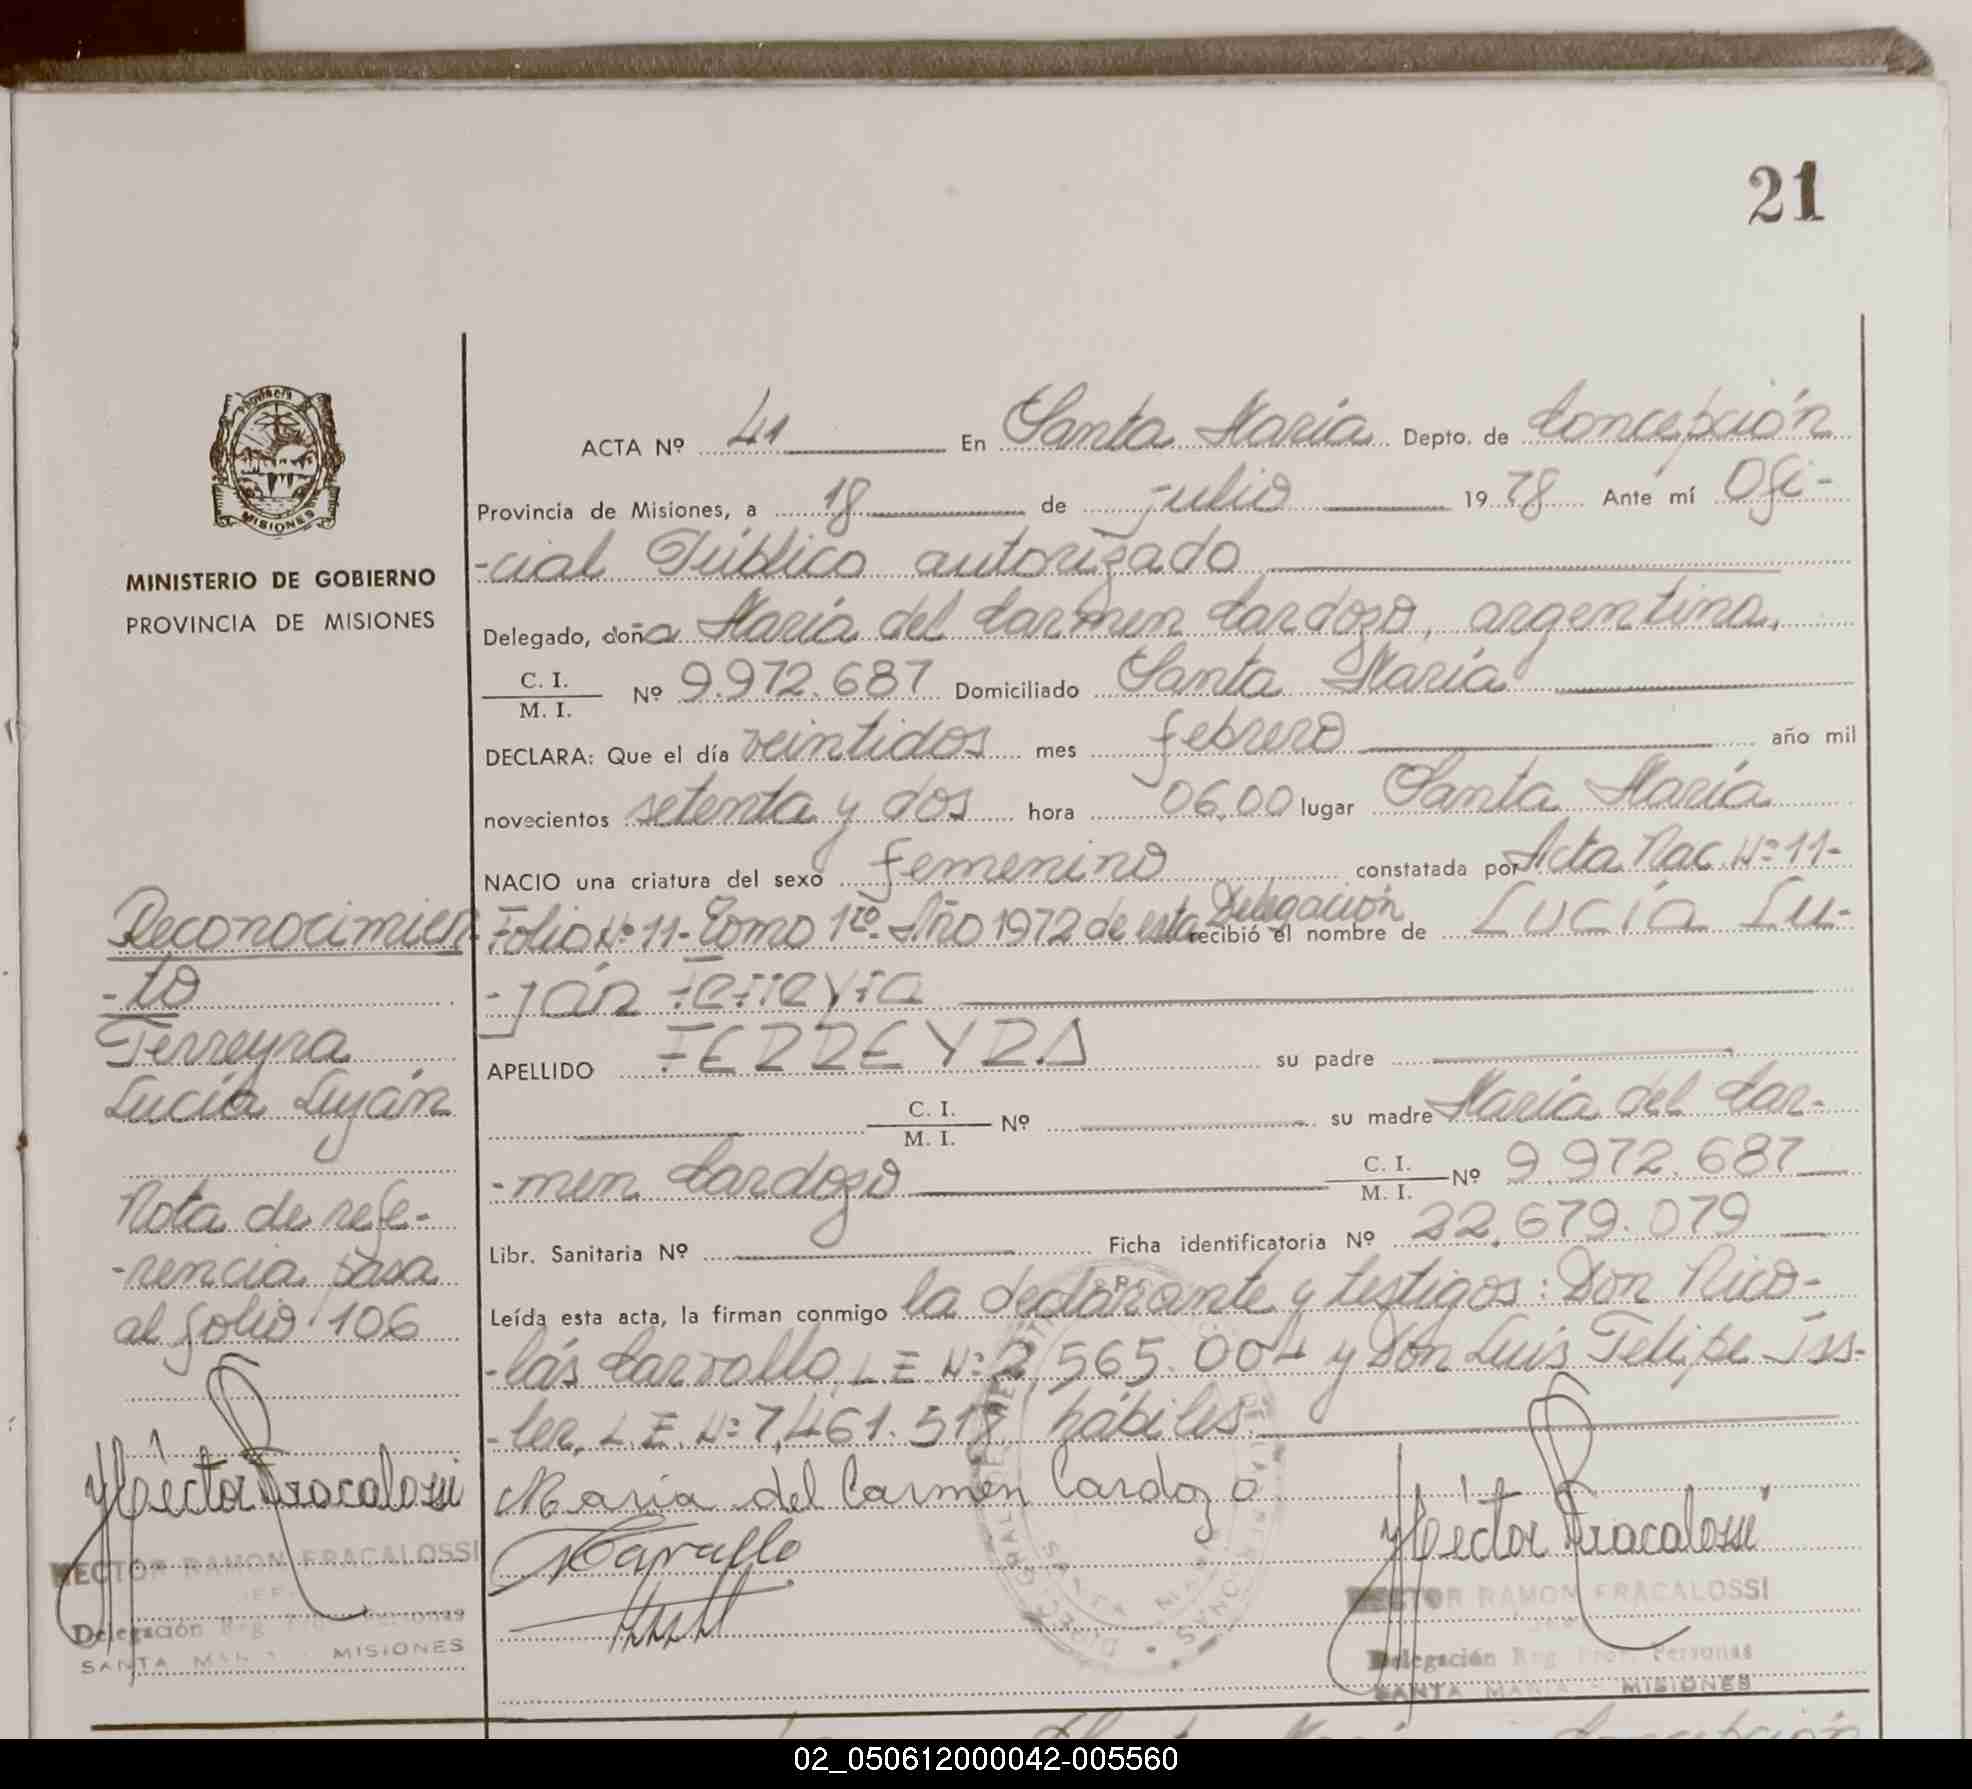 21
MISIONES
MINISTERIO DE GOBIERNO
PROVINCIA DE MISIONES
ACTA Nº 41 En Santa María Depto. de Concepción
Provincia de Misiones, a 18 de julio 19 78 Ante mí Ofi-
-cial Público autorizado
Delegado, doña María del Carmen Cardozo, argentina,
C. I. / M. I. Nº 9.972.687 Domiciliado Santa María
DECLARA: Que el día veintidos mes febrero año mil
novecientos setenta y dos hora 06,00 lugar Santa María
NACIO una criatura del sexo femenino constatada por Acta Nac. Nº 11-
Folio Nº 11- Tomo 1ro. Año 1972 de esta Delegación recibió el nombre de Lucía Lu-
-ján Ferreyra
APELLIDO FERREYRA su padre
C. I. / M. I. Nº su madre María del Car-
-men Cardozo C. I. / M. I. Nº 9.972.687
Libr. Sanitaria Nº Ficha identificatoria Nº 22.679.079
Leída esta acta, la firman conmigo la declarante y testigos: Don Nico-
-lás Carvallo, L.E. Nº 2,565.004 y Don Luis Felipe Iss-
-ler, L.E. Nº 7,461.517 hábiles.
María del Carmen Cardozo
Carvallo
Héctor Fracalossi
HECTOR RAMON FRACALOSSI
JEFE
Delegación Reg. Prov. Personas
SANTA MARIA - MISIONES
Reconocimien
-to
Ferreyra
Lucía Luján
Nota de refe-
-rencia pasa
al folio 106
Héctor Fracalossi
HECTOR RAMON FRACALOSSI
JEFE
Delegación Reg. Prov. Personas
SANTA MARIA - MISIONES
02_050612000042-005560